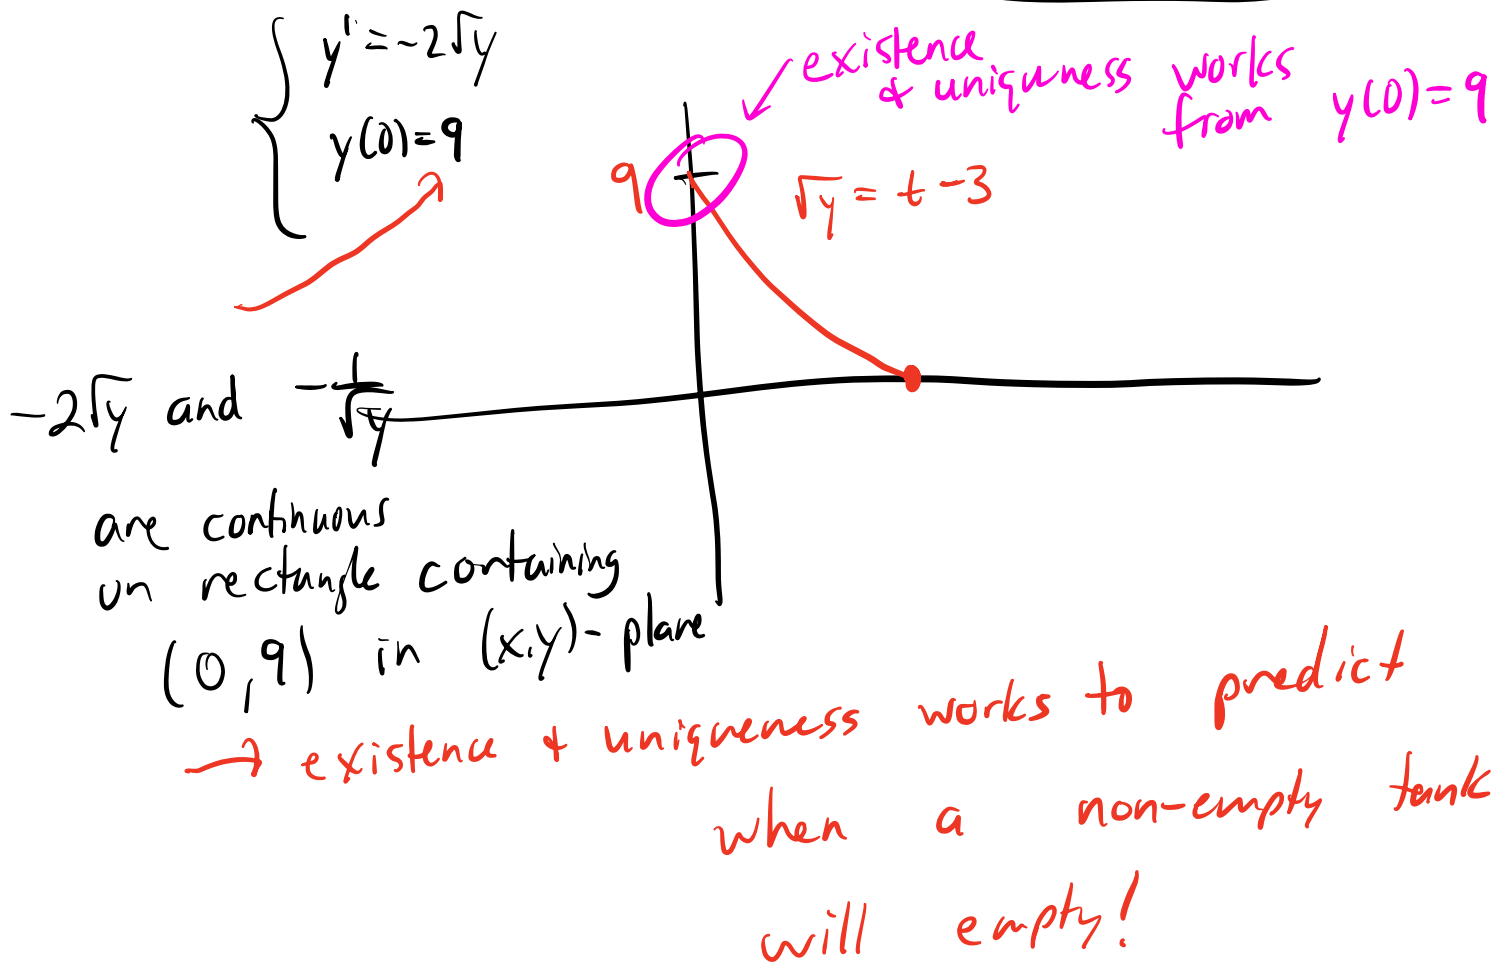 y' = -2√y
y(0)=9
existence
& uniqueness works
from y(0)=9
9
√y = t-3
-2√y and -1/√y
are continuous
on rectangle containing
(0,9) in (x,y)-plane
→ existence & uniqueness works to predict
when a non-empty tank
will empty!